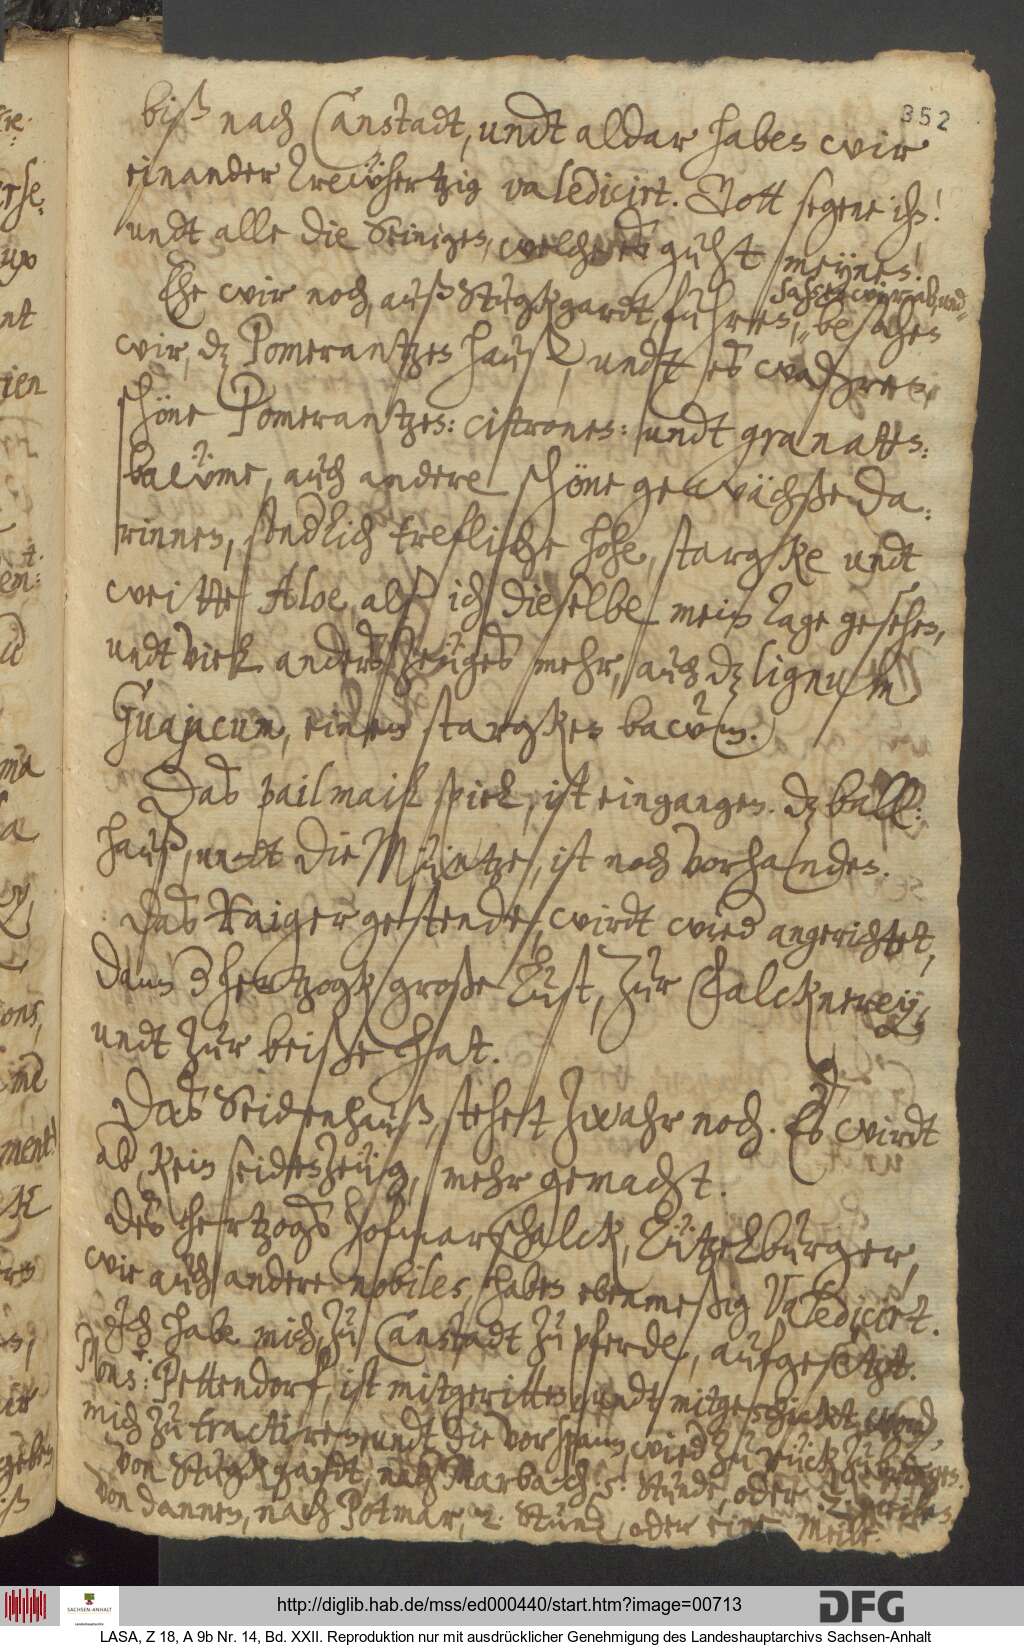 352
biß nach Canstadt, undt aldar haben wir
einander trewhertzig valediciret. Gott segene ihn!
undt alle die Seinigen, welche es guht meynen!
Ehe wir noch auß Stugkgardt fuhren, besahen
sahen wir ab, und
wir, dz Pomerantzen hauß, undt es wahren
schöne Pomerantzen: citronen: undt granatten:
baeüme, auch andere schöne gewächße da:
rinnen, sendlich treflische hohe, stargke undt
weitte Aloe, alß ich dieselbe mein tage gesehen,
undt viel anders zeüges mehr, auch dz lignum
Guajacum, einen stargken bawm.
Das pailmail spiel, ist eingangen. dz ball:
hauß, undt die Müntze, ist noch vorhanden.
Das Raigergestende, wirdt wied angerichtet,
dann d hertzogk große lust, zur Falcknerey,
undt zur beiße hat.
Das Seidenhauß, stehet zwahr noch. Es wirdt
ab kein seidenzeüg, mehr gemacht.
Des hertzogs hofmarschalck, Lützelburger,
wie auch andere nobiles, haben ebenmeßig valediciret.
Ich habe mich, zu Canstadt zu pferde, aufgesetzt.
Mons: Pettendorf, ist mitgeritten, undt mitgeschickt word,
mich zu tractiren, undt die vorspann, wied zurück zu bringen.
Von Stugkgardt, nach Marbach, 5: Stunde, oder 2: meilen
von dannen, nach Potmar, 2: Stund, oder eine meile.
http://diglib.hab.de/mss/ed000440/start.htm?image=00713
SACHSEN-ANHALT
DFG
LASA, Z 18, A 9b Nr. 14, Bd. XXII. Reproduktion nur mit ausdrücklicher Genehmigung des Landeshauptarchivs Sachsen-Anhalt